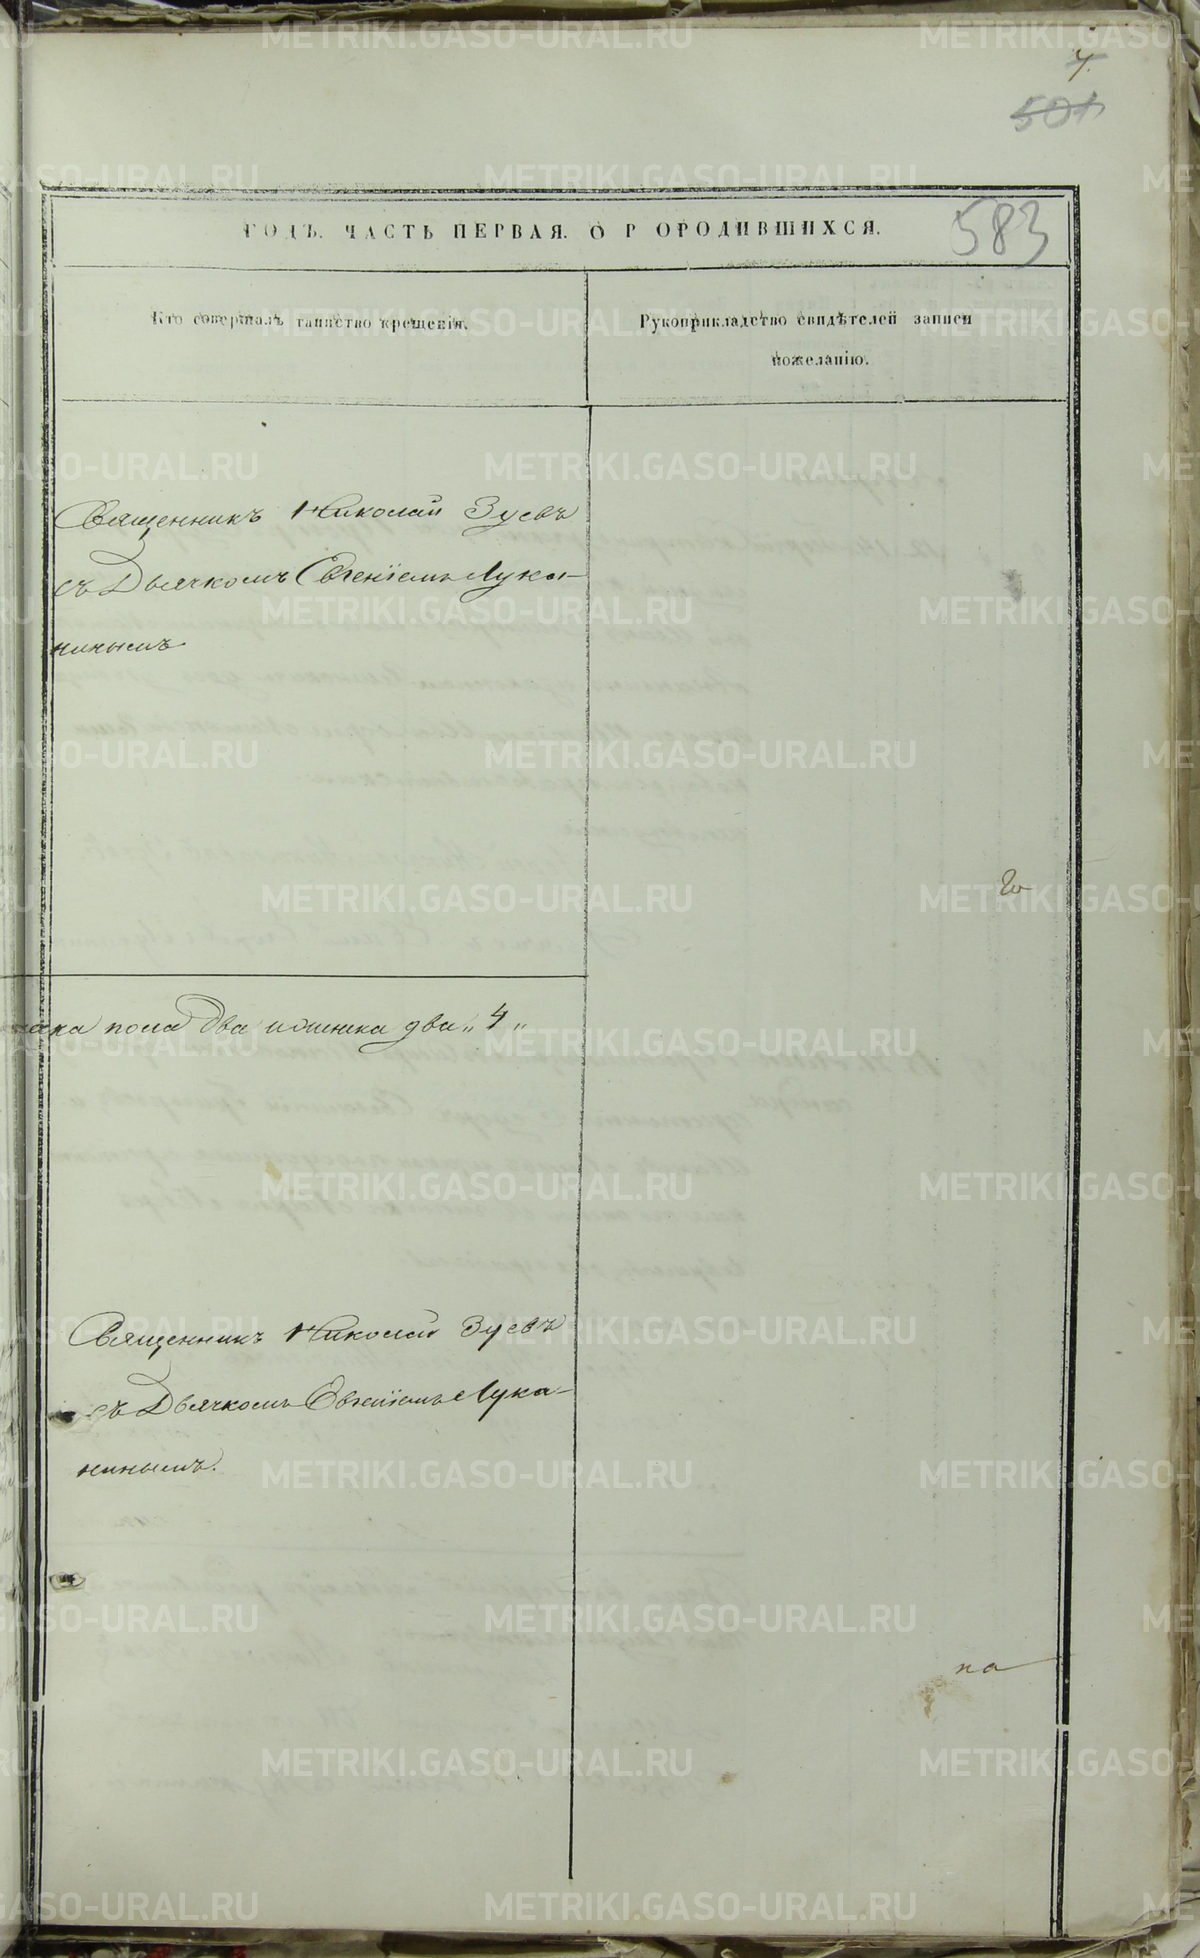 7.
501
583
ГОДЪ. ЧАСТЬ ПЕРВАЯ. О РОРОДИВШИХСЯ.
Кто совершалъ таинство крещенія.
Рукоприкладство свидѣтелей записи
пожеланію.
Священникъ Николай Зуевъ
съ Дьячкомъ Евгеніемъ Лука-
нинымъ
Го
пола два и женска два „4„
Священникъ Николай Зуевъ
съ Дьячкомъ Евгеніемъ Лука-
нинымъ.
на
METRIKI.GASO-URAL.RU